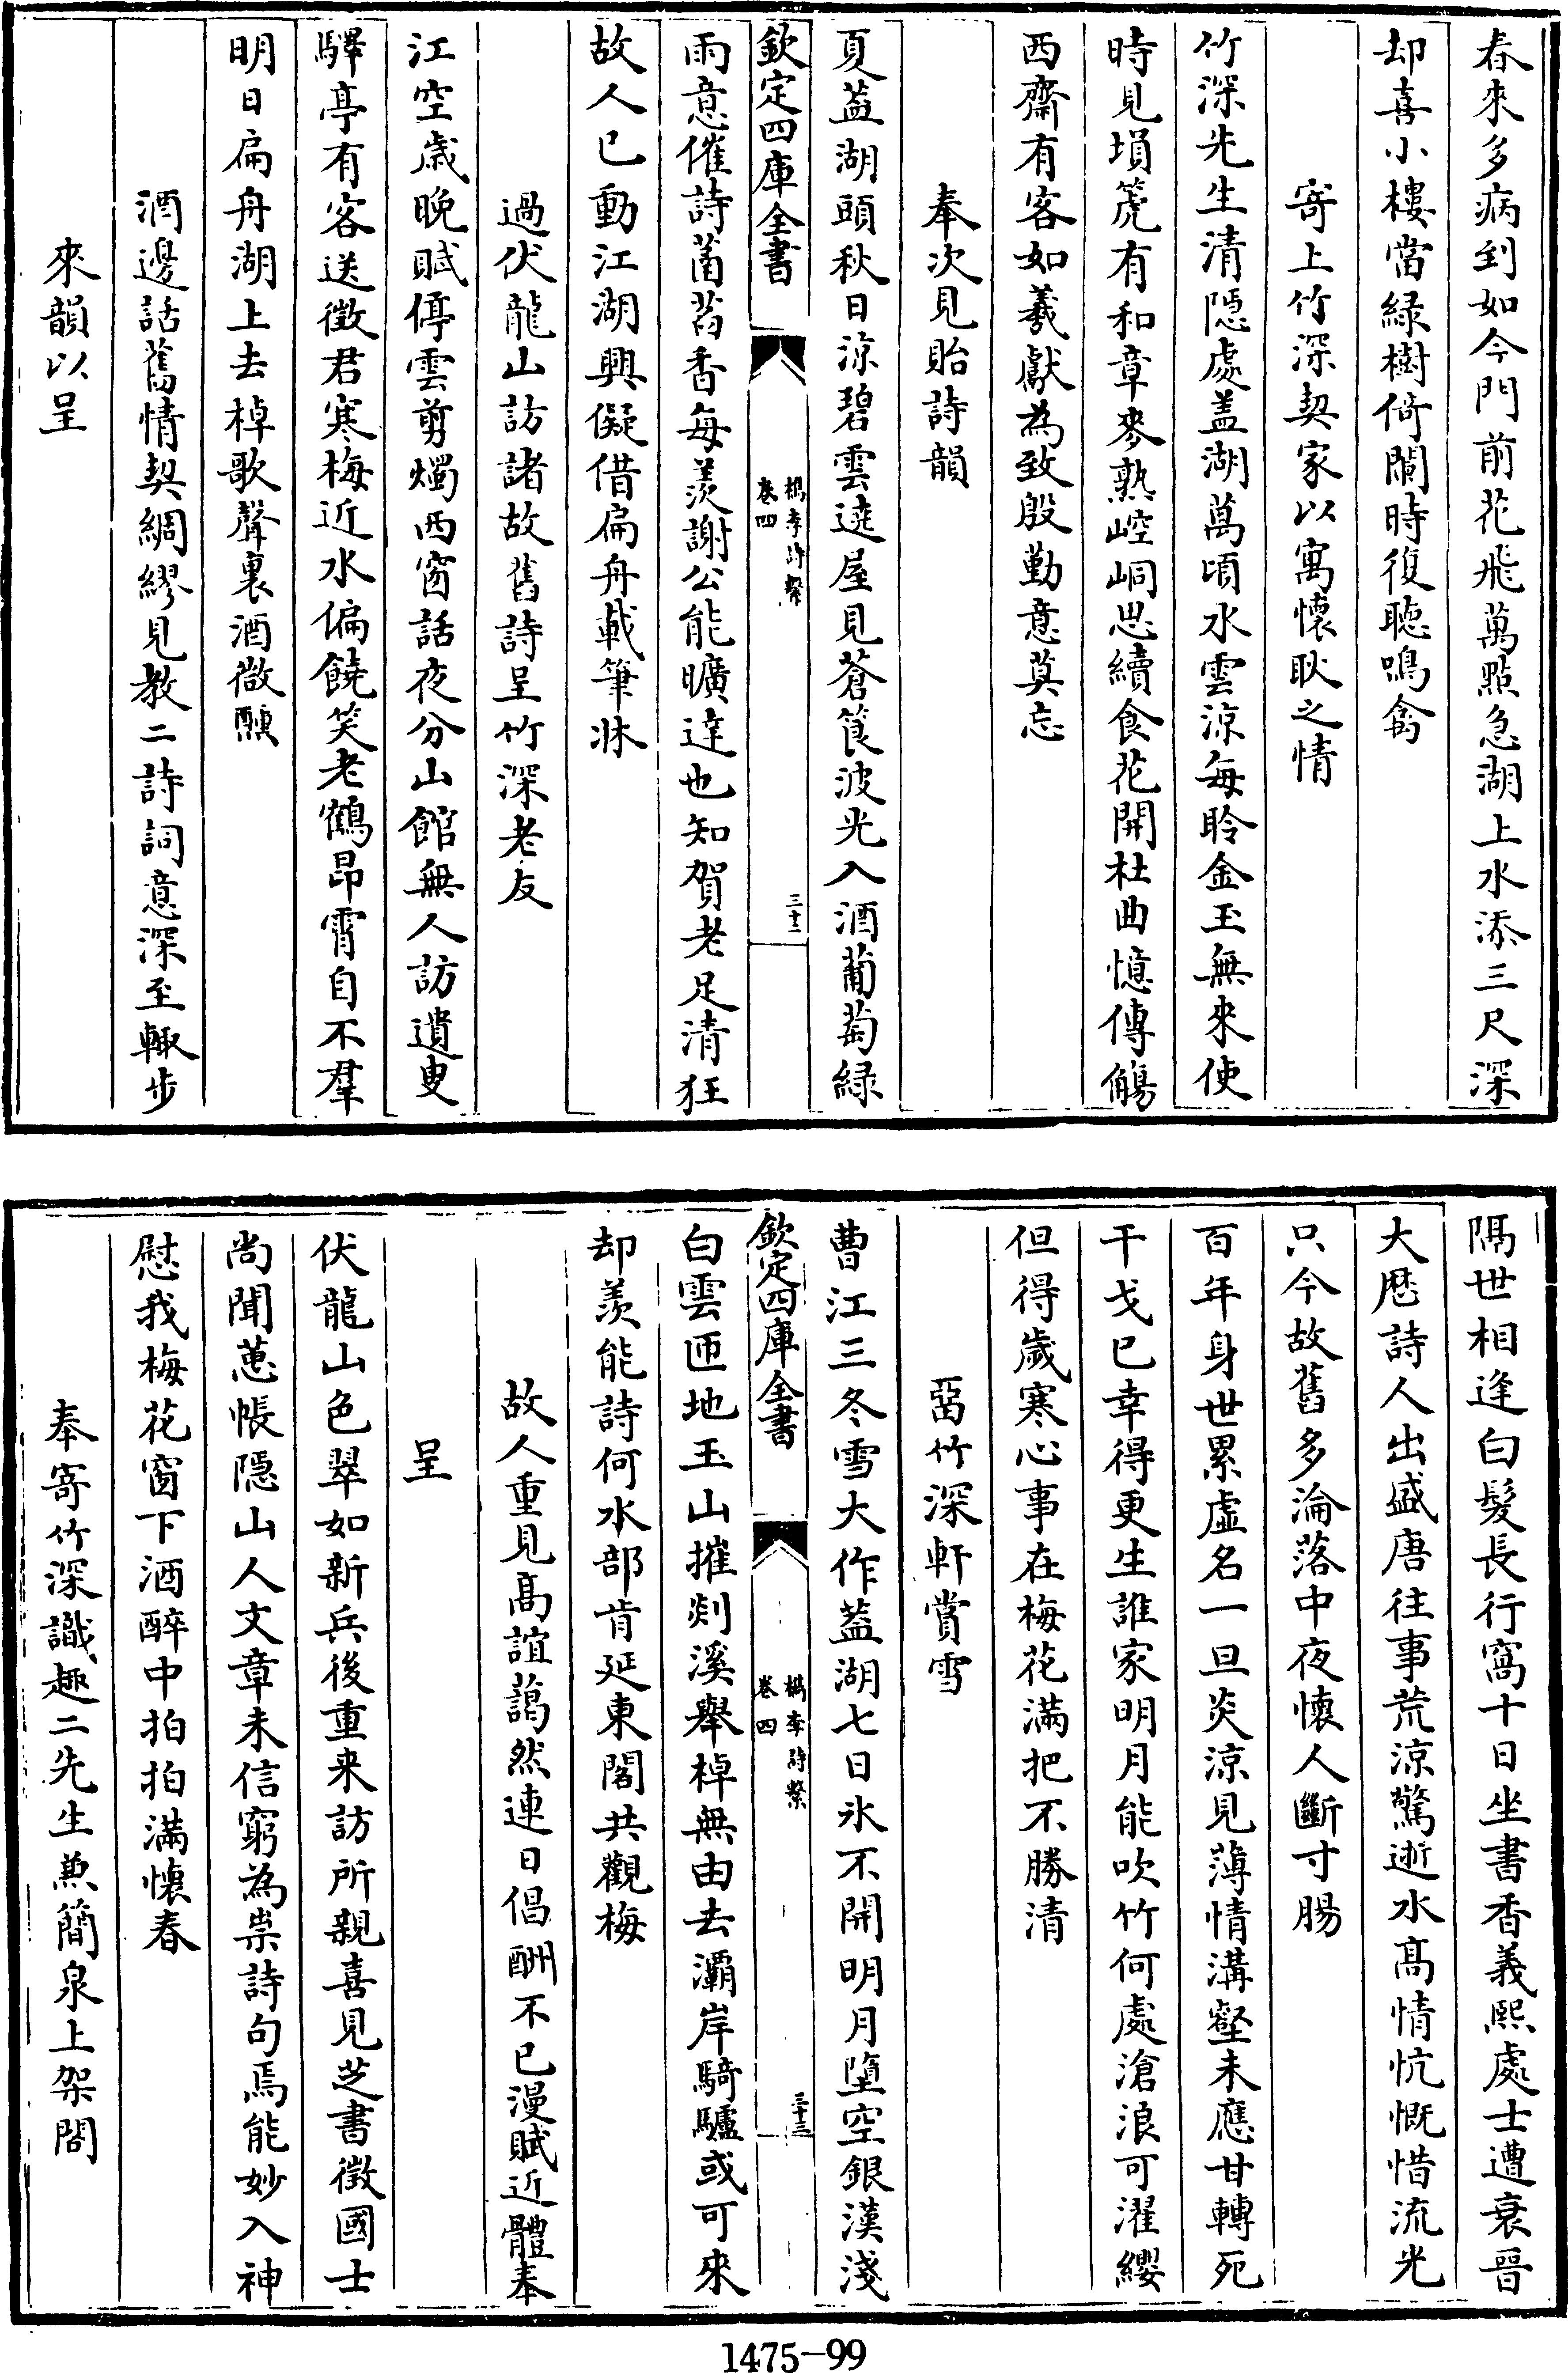 春來多病到如今門前花飛萬點急湖上水添三尺深
却喜小樓當緑樹倚闌時復聽鳴禽
寄上竹深契家以寓懷耿之情
竹深先生清隠處盖湖萬頃水雲涼每聆金玉無來使
時見塤箎有和章麥熟崆峒思續食花開杜曲憶傳觴
西齋有客如羲獻為致殷勤意莫忘
奉次見貽詩韻
夏葢湖頭秋日涼碧雲遶屋見蒼筤波光入酒葡萄緑
欽定四庫全書
檇李詩繫
卷四
三十二
雨意催詩菡萏香每羡謝公能曠達也知賀老足清狂
故人已動江湖興儗借扁舟載筆牀
過伏龍山訪諸故舊詩呈竹深老友
江空歲晚賦停雲剪燭西窗話夜分山館無人訪遺叟
驛亭有客送徴君寒梅近水偏饒笑老鶴昂霄自不羣
明日扁舟湖上去棹歌聲裏酒微醺
酒邊話舊情契綢繆見教二詩詞意深至輙步
來韻以呈
隔世相逢白髮長行窩十日坐書香義熙處士遭衰晉
大歴詩人出盛唐往事荒涼驚逝水髙情忼慨惜流光
只今故舊多淪落中夜懷人斷寸腸
百年身世累虛名一旦炎涼見薄情溝壑未應甘轉死
干戈已幸得更生誰家明月能吹竹何處滄浪可濯纓
但得歲寒心事在梅花滿把不勝清
畱竹深軒賞雪
曹江三冬雪大作葢湖七日氷不開明月墮空銀漢淺
欽定四庫全書
檇李詩繫
卷四
三十三
白雲匝地玉山摧剡溪舉棹無由去灞岸騎驢或可來
却羡能詩何水部肯延東閣共觀梅
故人重見髙誼藹然連日倡酬不已漫賦近體奉
呈
伏龍山色翠如新兵後重来訪所親喜見芝書徴國士
尚聞蕙帳隱山人文章未信窮為祟詩句焉能妙入神
慰我梅花窗下酒醉中拍拍滿懐春
奉寄竹深識趣二先生兼簡泉上架閣
1475-99